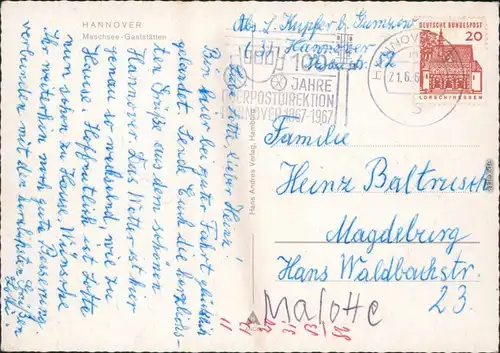 HANNOVER
Maschsee-Gaststätten
Liebe Lotte, lieber Heinz!
Bin hier bei guter Fahrt glücklich
gelandet. Sende Euch die herzlich-
sten Grüße aus dem schönen
Hannover. Das Wetter ist hier
genau so wechselnd, wie zu
Hause. Hoffentlich ist Lotte
nun schon zu Hause. Wünsche
Ihr weiterhin noch gute Besserung
verbunden mit den herzlichsten Grüßen
Hans Andres Verlag, Hamburg
Abs. L. Kupfer b. Gumzow
Hannover
100
JAHRE
OBERPOSTDIREKTION
HANNOVER 1867-1967
HANNOVER
21.6.6
DEUTSCHE BUNDESPOST
20
LORSCH/HESSEN
Familie
Heinz Baltrusch
Magdeburg
Hans Waldbachstr.
23.
Malotte